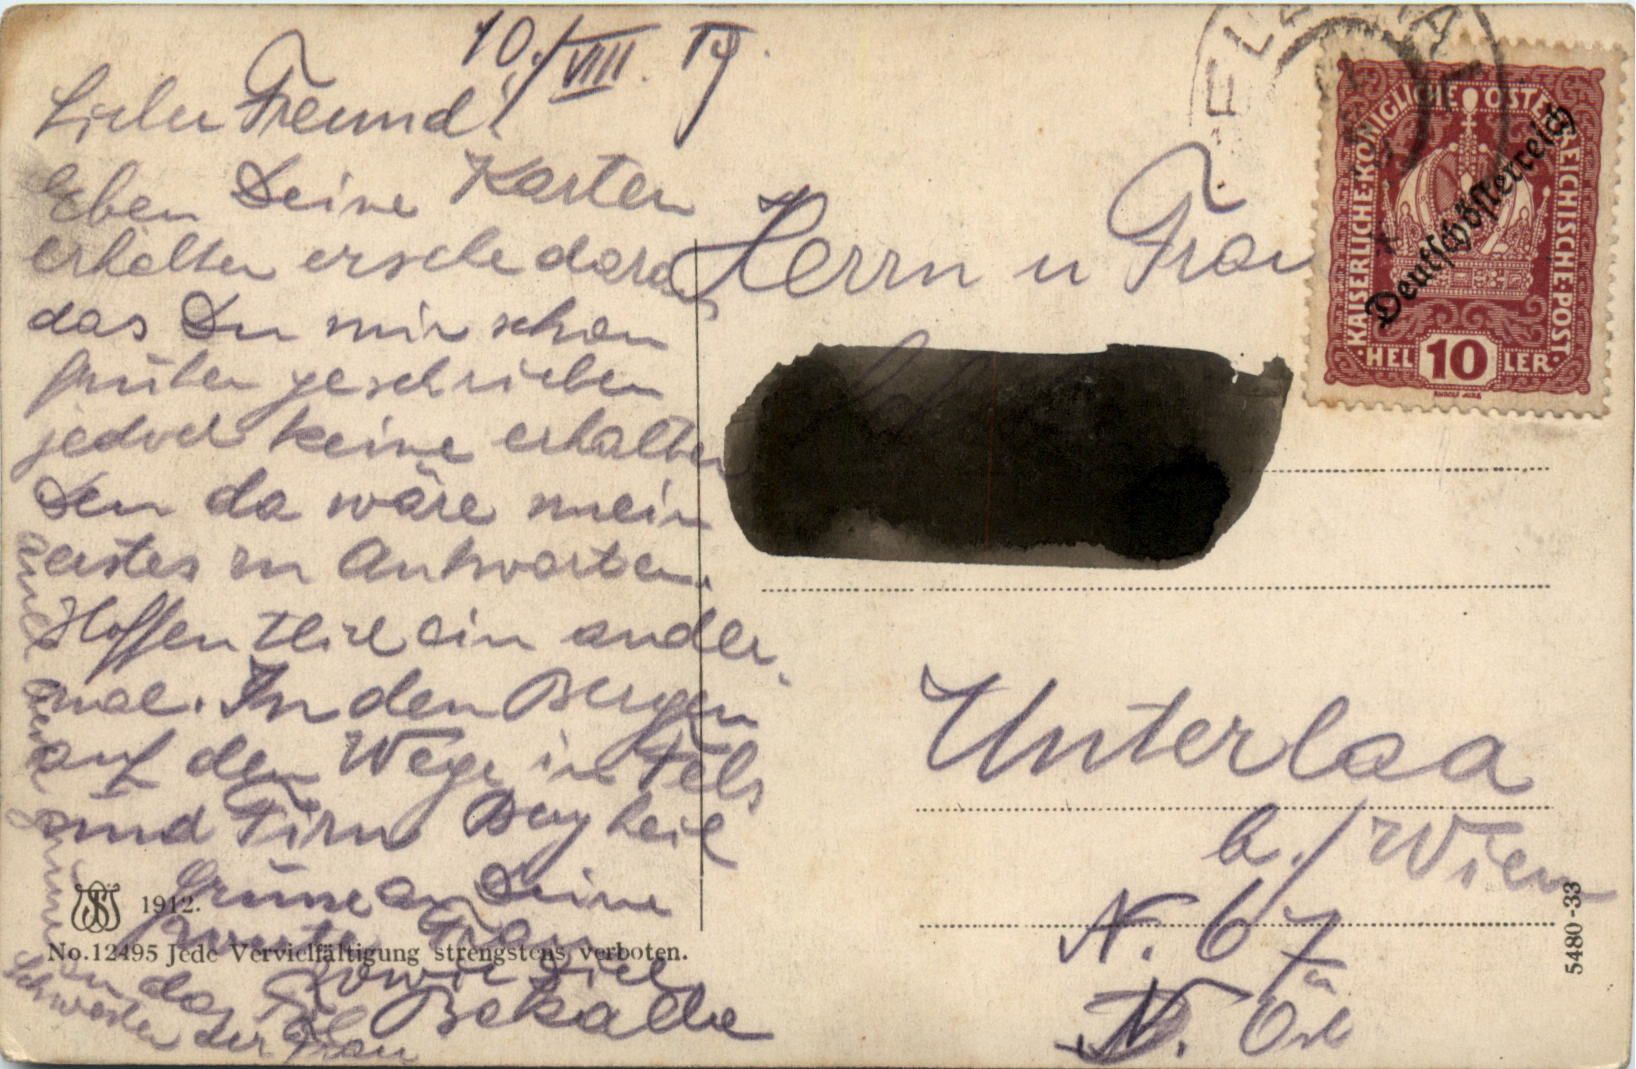 10./VIII. 19.
Lieber Freund!
Eben Deine Karten
erhalten ersehe daraus
das Du mir schon
früher geschrieben
jedoch keine erhalten
Den da wäre mein
erstes zu Antworten.
Hoffentlich ein ander
mal. In den Bergen
auf dem Wege in Fels
und Firn Berg heil
Grüsse an Deine
Frau
sowie
Bekannte
an das
Schwester der Frau
Herrn u Frau
Unterlaa
b./Wien
N. 67
N. Öst
KAISERLICHE KÖNIGLICHE ÖSTERREICHISCHE POST
Deutschösterreich
HELLER 10
1912.
No. 12495 Jede Vervielfältigung strengstens verboten.
5480-33